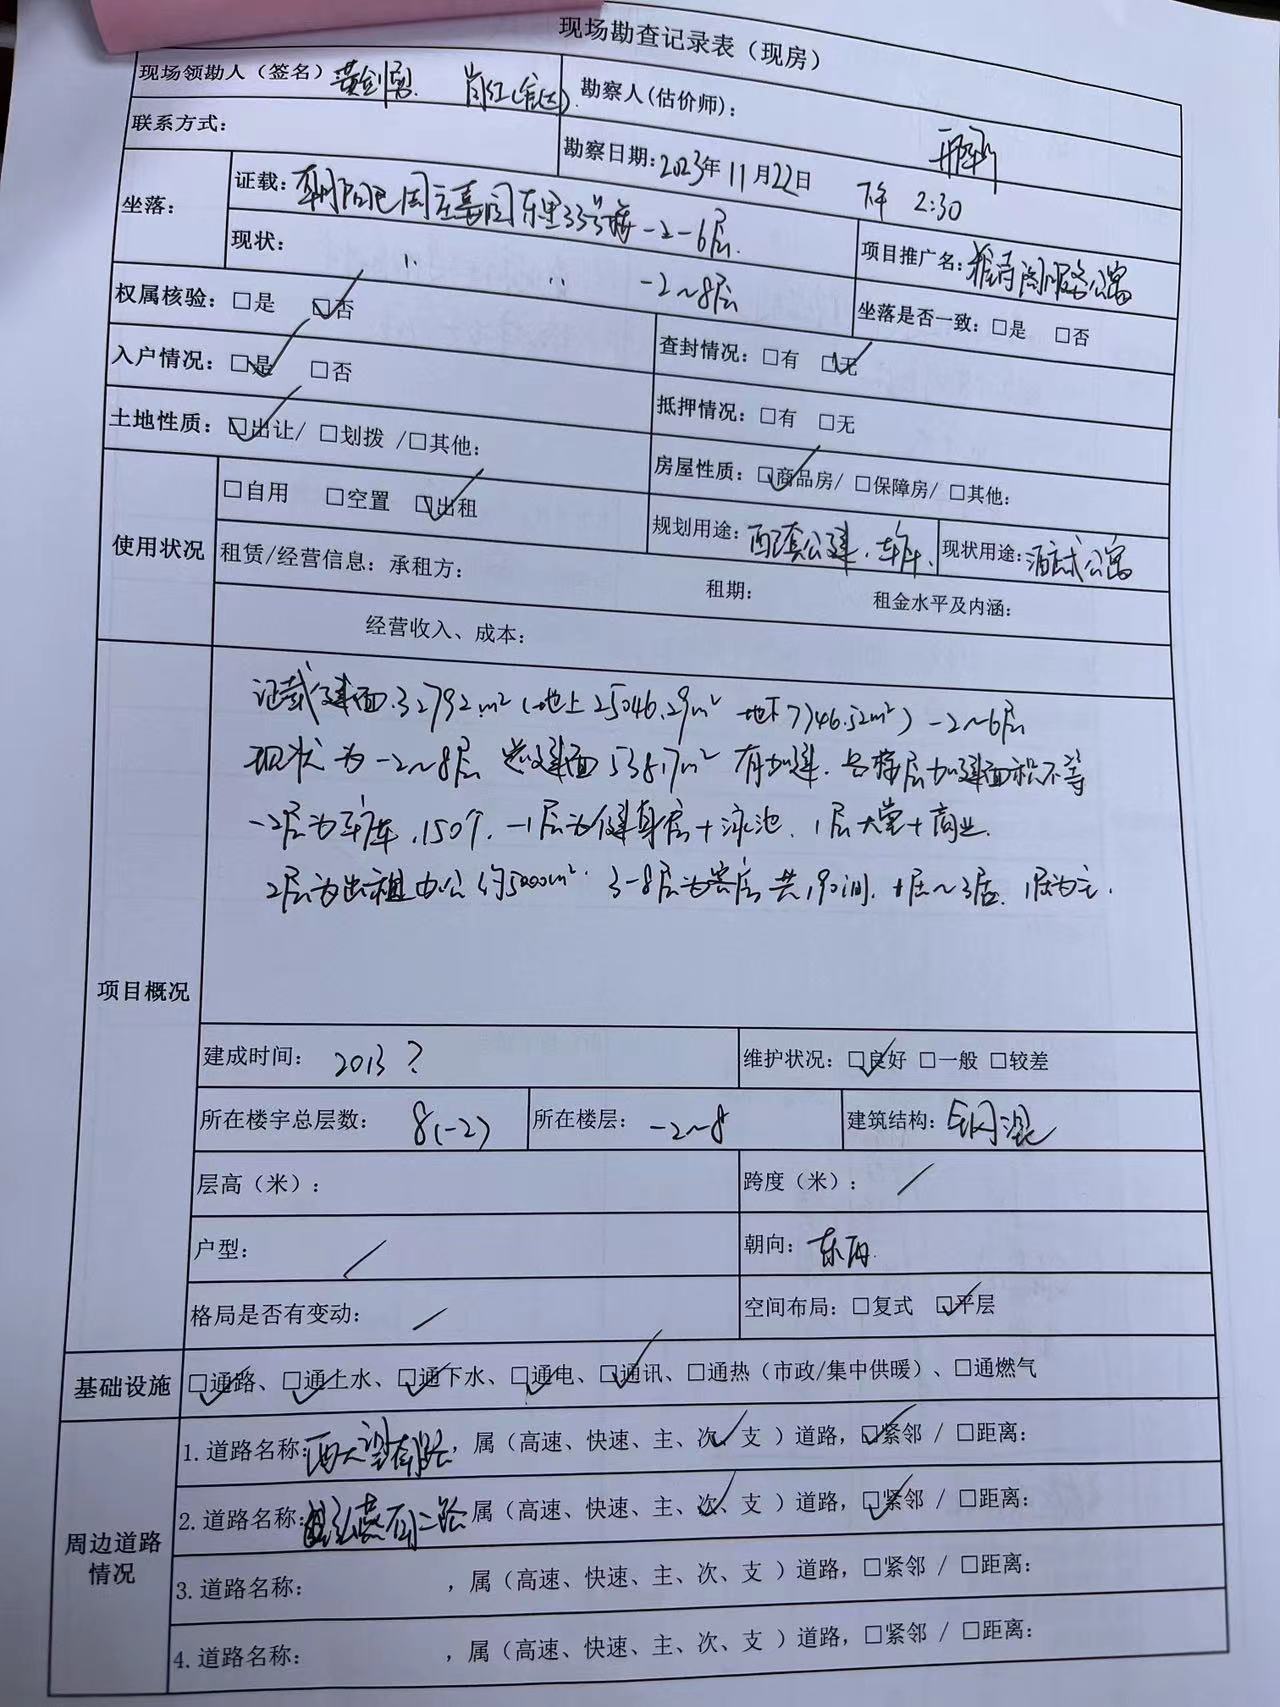 现场勘查记录表（现房）
现场领勘人（签名） 勘察人(估价师)：
联系方式： 勘察日期：2023年11月22日 下午 2:30
坐落： 证载：朝阳区周庄嘉园东里33号楼-2-6层. 项目推广名：雅诗阁服务公寓
现状： 〃 〃 -2~8层 坐落是否一致：□是 □否
权属核验：□是 ☑否 查封情况：□有 ☑无
入户情况：☑是 □否 抵押情况：□有 □无
土地性质：☑出让/ □划拨 /□其他： 房屋性质：☑商品房/ □保障房/ □其他：
使用状况 □自用 □空置 ☑出租 规划用途：配套公建、车库、 现状用途：酒店式公寓
租赁/经营信息：承租方： 租期： 租金水平及内涵：
经营收入、成本：
项目概况
证载建面.32792m²（地上25046.29m² 地下7746.52m²）-2~6层
现状为-2~8层 总建面53817m² 有加建. 各楼层加建面积不等
-2层为车库，150个. -1层为健身房+泳池. 1层大堂+商业.
2层为出租办公 约5000m². 3-8层为客房 共190间. 1居~3居. 1居为主.
建成时间： 2013 ? 维护状况：☑良好 □一般 □较差
所在楼宇总层数： 8(-2) 所在楼层： -2~8 建筑结构：钢混
层高（米）： 跨度（米）： /
户型： / 朝向：东西.
格局是否有变动： / 空间布局：□复式 ☑平层
基础设施 ☑通路、☑通上水、☑通下水、☑通电、☑通讯、□通热（市政/集中供暖）、□通燃气
周边道路情况
1.道路名称:西大望南路，属（高速、快速、主、次✓、支 ）道路，☑紧邻 / □距离：
2.道路名称:弘燕南二路 属（高速、快速、主、次✓、支 ）道路，☑紧邻 / □距离：
3.道路名称： ，属（高速、快速、主、次、支 ）道路，□紧邻 / □距离：
4.道路名称： ，属（高速、快速、主、次、支 ）道路，□紧邻 / □距离：